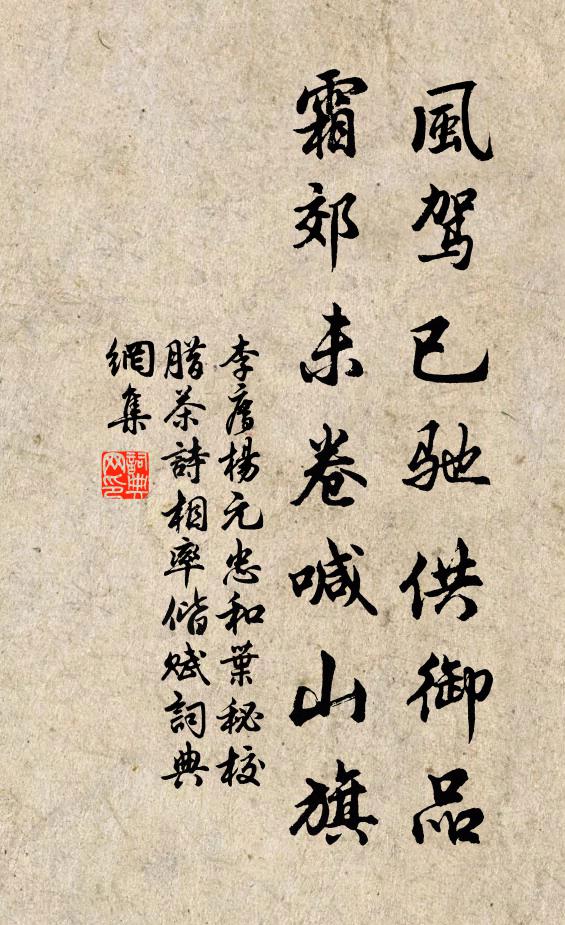 風駕已馳供御品
霜郊未卷喊山旗
李廌楊元忠和葉秘校
腊茶詩相率偕賦詞典
網集
詞典
网印